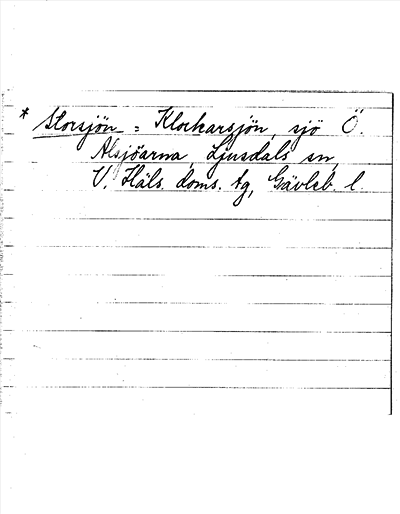 * Storsjön = Klockarsjön, sjö Ö.
Alsjöarna, Ljusdals sn,
V. Häls. doms. tg, Gävleb. l.